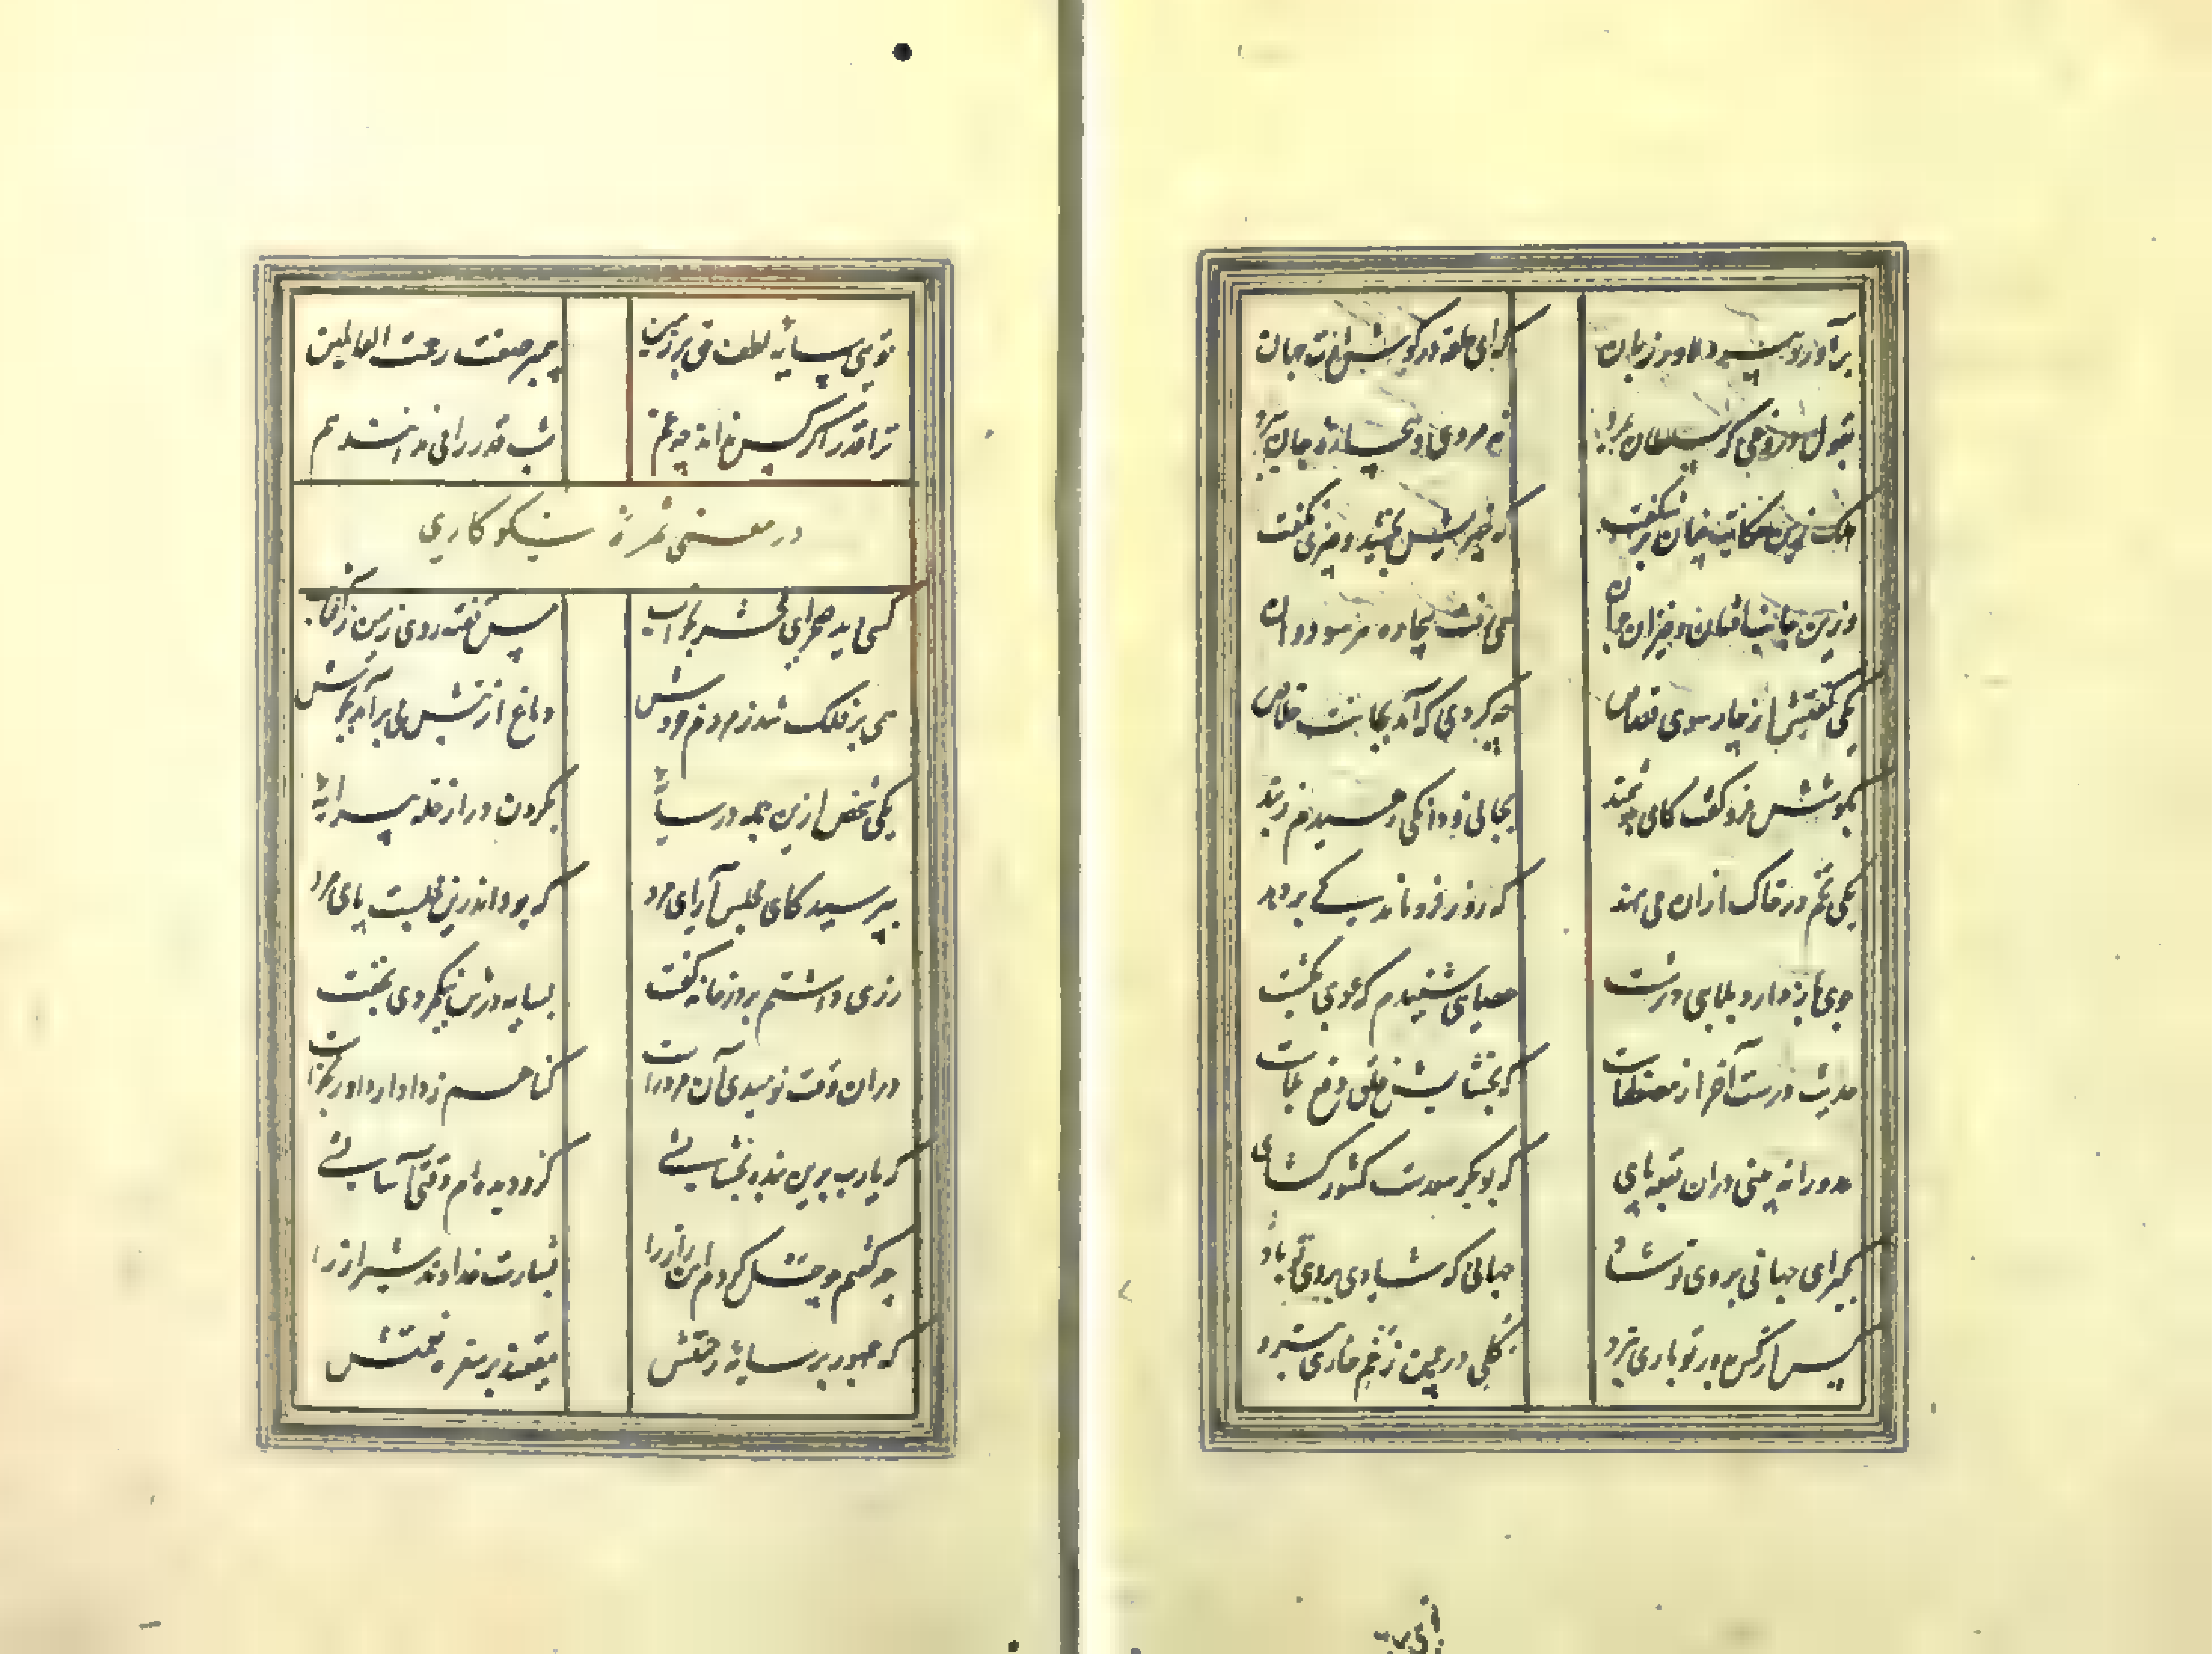 برآورد پیر دلاور زبان
که ای حلقه در گوش حکمت جهان
بقول دروغی که سلطان بمرد
نمردی و بیچاره جان ببرد
ملک زین حکایت چنان برشکفت
که چیزش ببخشید و چیزی نگفت
وزین جانب افتان و خیزان جوان
همی رفت بیچاره هر سو دوان
یکی گفتش از چار سوی قصاص
چه کردی که آمد بجانت خلاص
بگوشش فرو گفت کای هوشمند
بجانی و دانگی رهیدم ز بند
یکی تخم در خاک ازان می نهد
که روز فرو ماندگی بر دهد
جوی باز دارد بلایی درشت
عصایی شنیدم که عوجی بکشت
حدیث درست آخر از مصطفاست
که بخشایش و خیر دفع بلاست
عدو را نبینی دران بقعه پای
که بوبکر سعدست کشور گشای
بگیر ای جهانی بروی تو شاد
جهانی که شادی بروی تو باد
کس از کس بدور تو باری نبرد
گلی در چمن زخم خاری نبرد
تویی سایه لطف حق بر زمین
پیمبر صفت رحمت العالمین
ترا قدر اگر کس نداند چه غم
شب قدر را می ندانند هم
در معنی ثمره نیکو کاری
کسی دید صحرای محشر بخواب
مس تفته روی زمین ز آفتاب
همی بر فلک شد ز مردم خروش
دماغ از تپش می برآمد بجوش
یکی شخص ازین جمله در سایهٔ
بگردن در از حله پیرایهٔ
بپرسید کای مجلس آرای مرد
که بود اندرین مجلست پای مرد
رزی داشتم بر در خانه گفت
بسایه درش نیکمردی بخفت
دران وقت نومیدی آن مرد راست
گناهم ز دادار داور بخواست
که یارب برین بنده بخشایشی
کزو دیده ام وقتی آسایشی
چه گفتم چو حل کردم این راز را
بشارت خداوند شیراز را
که جمهور بر سایهٔ همتش
مقیمند بر سفره نعمتش